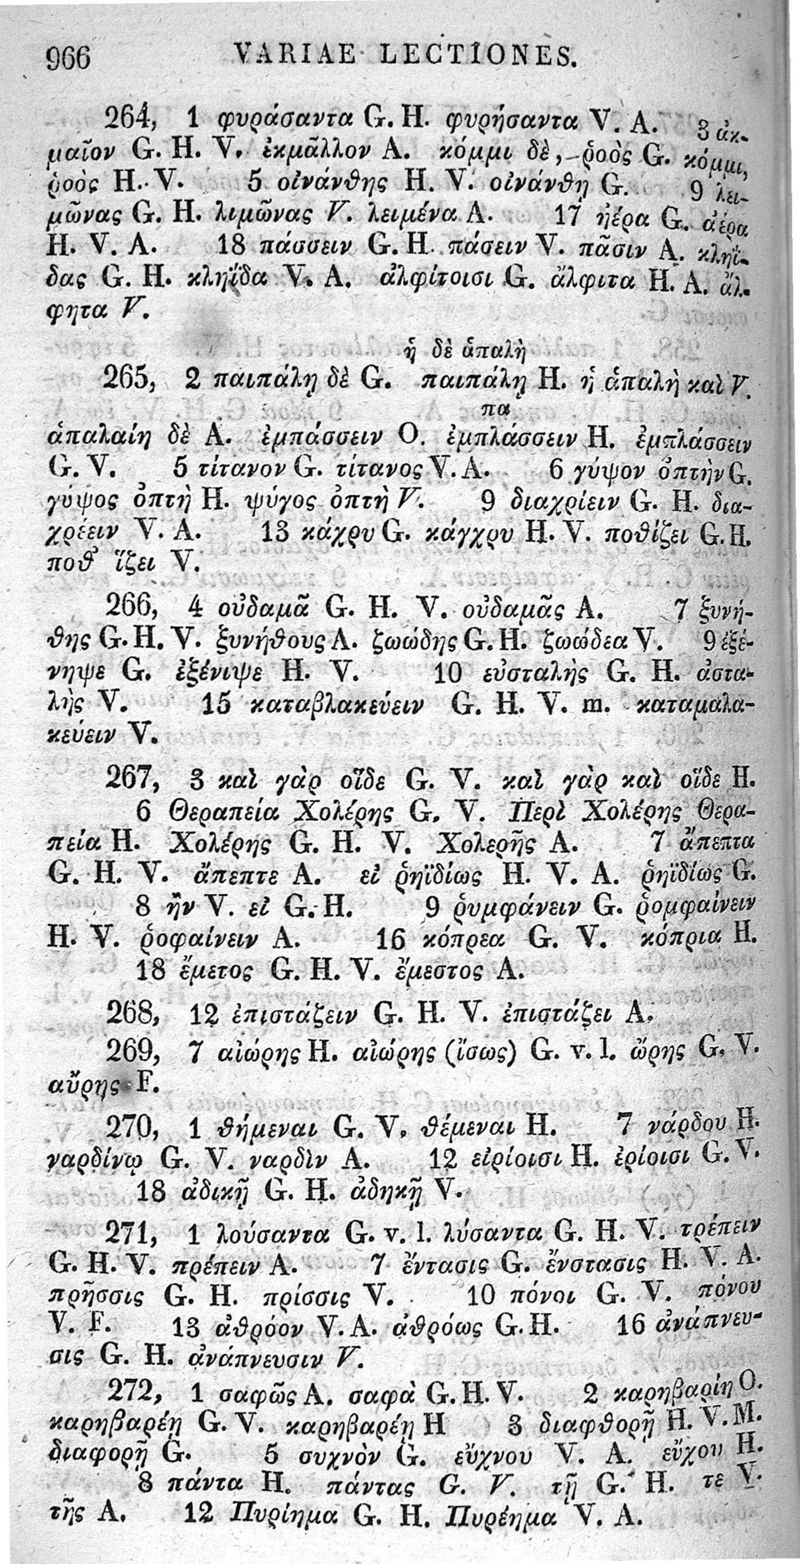 966 VARIAE LECTIONES.
264, 1 φυράσαντα G. H. φυρήσαντα V. A. 3 ἀκ-
μαῖον G. H. V. ἐκμᾶλλον A. κόμμι δὲ, ῥοὸς G. κόμμι,
ῥοὸς H. V. 5 οἰνάνθης H. V. οἰνάνθη G. 9 λει-
μῶνας G. H. λιμῶνας V. λειμένα A. 17 ἠέρα G. ἀέρα
H. V. A. 18 πάσσειν G. H. πάσειν V. πᾶσιν A. κληΐ-
δας G. H. κληΐδα V. A. ἀλφίτοισι G. ἄλφιτα H. A. ἄλ-
φητα V.
ἡ δὲ ἁπαλὴ
265, 2 παιπάλη δὲ G. παιπάλη H. ἡ ἁπαλὴ καὶ V.
πα
ἁπαλαίη δὲ A. ἐμπάσσειν O. ἐμπλάσσειν H. ἐμπλάσσειν
G. V. 5 τίτανον G. τίτανος V. A. 6 γύψον ὀπτὴν G.
γύψος ὀπτὴ H. ψύγος ὀπτὴ V. 9 διαχρίειν G. H. δια-
χρέειν V. A. 13 κάχρυ G. κάγχρυ H. V. ποθίζει G. H.
ποθ᾽ ἵζει V.
266, 4 οὐδαμᾶ G. H. V. οὐδαμᾶς A. 7 ξυνή-
θης G. H. V. ξυνήθους A. ζωώδης G. H. ζωώδεα V. 9 ἐξέ-
νηψε G. ἐξένιψε H. V. 10 εὐσταλὴς G. H. ἀστα-
λὴς V. 15 καταβλακεύειν G. H. V. m. καταμαλα-
κεύειν V.
267, 3 καὶ γὰρ οἵδε G. V. καὶ γὰρ καὶ οἵδε H.
6 Θεραπεία Χολέρης G. V. Περὶ Χολέρης Θερα-
πεία H. Χολέρης G. H. V. Χολερῆς A. 7 ἄπεπτα
G. H. V. ἄπεπτε A. εἰ ῥηϊδίως H. V. A. ῥηϊδίως G.
8 ἢν V. εἰ G. H. 9 ῥυμφάνειν G. ῥομφαίνειν
H. V. ῥοφαίνειν A. 16 κόπρεα G. V. κόπρια H.
18 ἔμετος G. H. V. ἔμεστος A.
268, 12 ἐπιστάζειν G. H. V. ἐπιστάζει A.
269, 7 αἰώρης H. αἰώρης (ἴσως) G. v. l. ὤρης G. V.
αὔρης F.
270, 1 θήμεναι G. V. θέμεναι H. 7 νάρδου H.
ναρδίνῳ G. V. ναρδὶν A. 12 εἰρίοισι H. ἐρίοισι G. V.
18 ἀδικῇ G. H. ἀδηκῇ V.
271, 1 λούσαντα G. v. l. λύσαντα G. H. V. τρέπειν
G. H. V. πρέπειν A. 7 ἔντασις G. ἔνστασις H. V. A.
πρῆσσις G. H. πρίσσις V. 10 πόνοι G. V. πόνου
V. F. 13 ἀθρόον V. A. ἀθρόως G. H. 16 ἀνάπνευ-
σις G. H. ἀνάπνευσιν V.
272, 1 σαφῶς A. σαφὰ G. H. V. 2 καρηβαρίη O.
καρηβαρέῃ G. V. καρηβαρέη H 3 διαφθορῇ H. V. M.
διαφορῇ G. 5 συχνὸν G. εὔχνου V. A. εὔχου H.
8 πάντα H. πάντας G. V. τῇ G. H. τε V.
τῆς A. 12 Πυρίημα G. H. Πυρέημα V. A.